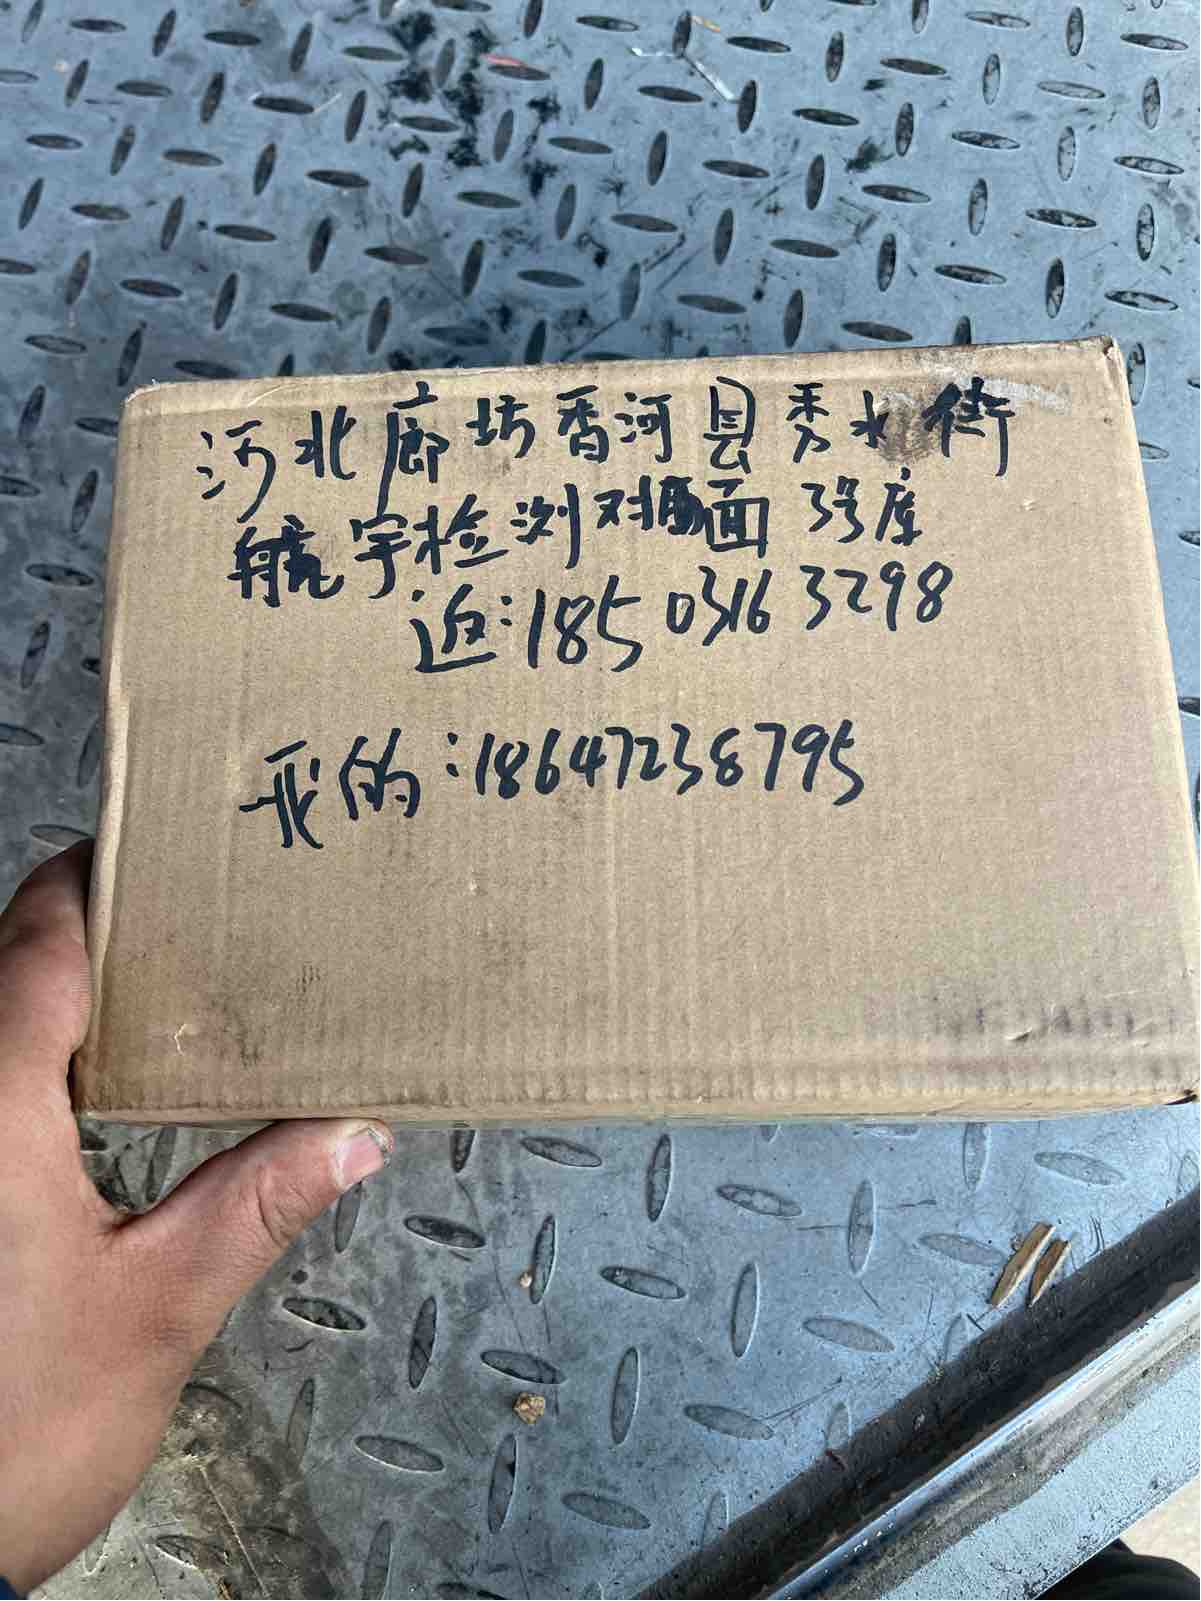 河北廊坊香河县秀水街
航宇检测对面3号库
返:185 0316 3298
的:18647238795